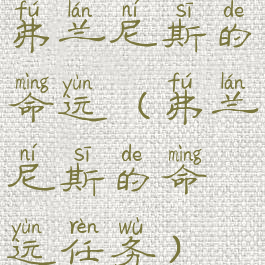 fú lán ní sī de
弗兰尼斯的
mìng yùn fú lán
命运(弗兰
ní sī de mìng
尼斯的命
yùn rèn wù
运任务)